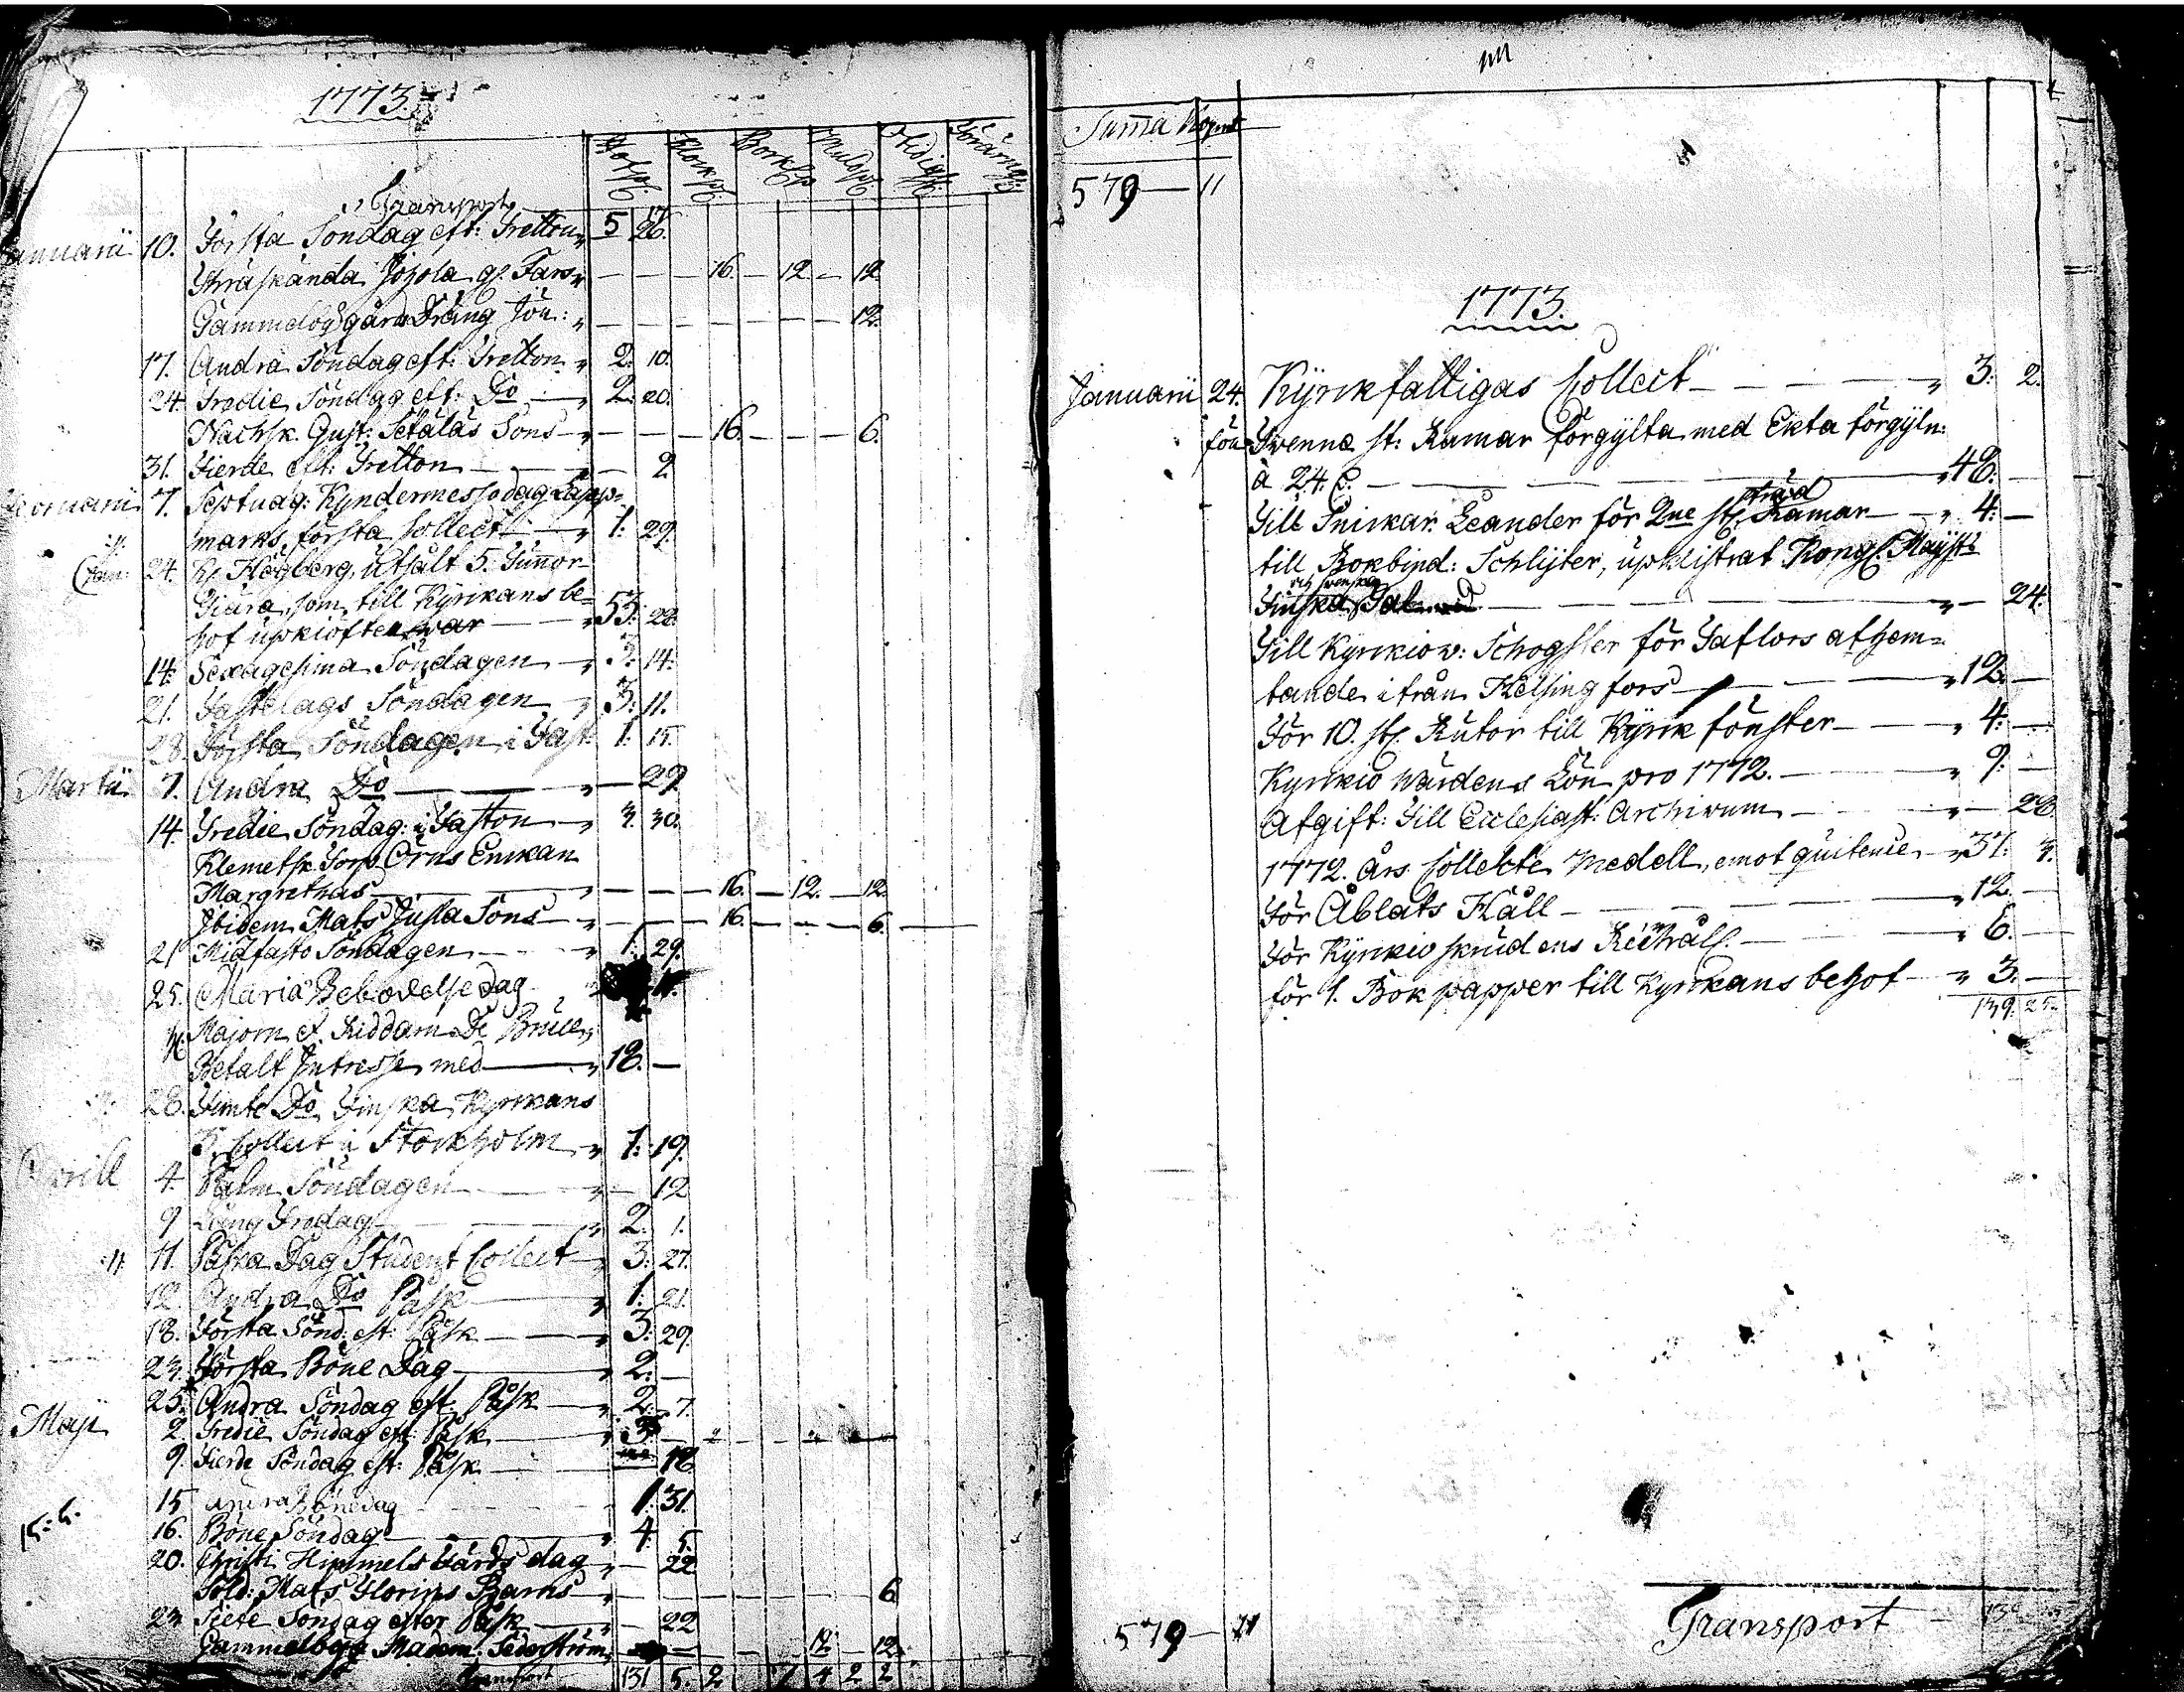 1773.
Transport
Januarii 10. Första Söndag eft: Tretton 5 26.
Thräskända Jojola gl. Fars 16. 12 12
Gammelby gårds Dräng Jöu: 12.
17. Andra Söndag eft: Tretton 2. 10.
24. Tredie Söndag eft: Do 2. 20.
Nachsk. Gust: Setäläs Sons 16. 6.
31. Fierde eft: Tretton 2
7. Septuag: Kyndermesso dag Lapp=
marks första Collect 1: 29.
24. Hägberg, utsålt 5. Tunnor
som till Kyrkans be=
hof upkiöfte war 53: 22.
14. Sexagesima Söndagen 3: 14.
21. Fastelags Söndagen 3: 11.
28. Första Söndagen i Fast: 1: 15.
Martii 7. Andra Do 29
14. Tredie Söndag i Faston 3. 30.
Klemetsk Torp Örns Enkan
Margrethas 16. 12. 12
Ibidem Mats Jusla Sons 16. 6.
21 Midfasto Söndagen 1: 29.
25. Mariä Bebodelse Dag
Majorn & Riddarn De Bruce
Betalt Intresse med 18.
28. Femte Do Finska Kyrkans
Collect i Stockholm 1: 19.
Aprill 4. Palm Söndagen 12
9 Lång Fredag 2. 1.
11. Påska Dag Student Collect 3: 27.
12. Andra Do Påsk 1: 21.
18. Första Sönd. eft: Påsk 3: 29.
23. Första Böne Dag 2.
25. Andra Söndag eft Påsk 2. 7.
Maji 2. Tredie Söndag eft: Påsk 3
9. Fierde Söndag eft: Påsk 18
15 Andra Bönedag 1. 31.
16. Böne Söndag 4. 5.
20. Christi Himmels Färds dag 22
Sold: Mats Florins Barns 6
23 Siette Söndag efter Påsk 22
Gammelby Madem Sederström 12 12.
Transport 131 5. 2 7 4 2 2
Summa
579 11
1773.
Januarii 24. Kyrkfattigas Collect 3: 2.
Tvenne st: Ramar förgylta med Ekta förgyln:
à 24. 48.
Till Snickar Leander för 2ne st. Ramar 4:
till Bokbind: Schlyter, upklistrat Kongl. Mayst:
och svenska
Finska 24.
Till Kyrkiov: för Taflors afhem=
tande ifrån Helsingfors 12.
För 10. st. Rutor till Kyrk fönster 4:
Kyrkio wärdens Lön pro 1772. 9:
Afgift: Till Ecclesiast: Archivum 28.
1772. Års Collecte Medell, emot quitence 37: 4.
För Åblats Käll 12.
För Kyrkio skrudens 6.
för 1. Bok papper till Kyrkans behof 3.
139. 25.
Transport
579 11